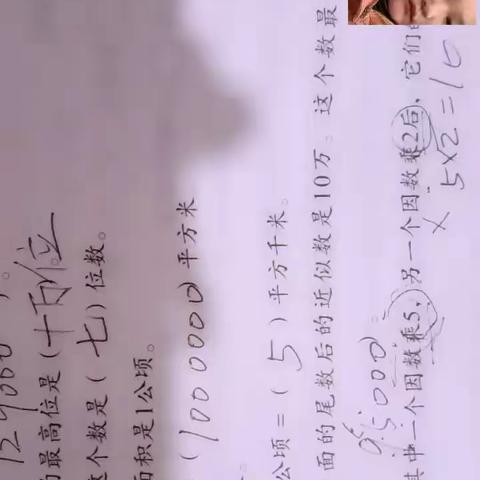 129000 )。
的最高位是(十万位
这个数是(七)位数。
面积是1公顷。
(1000000)平方米
公顷=(5)平方千米。
面的尾数后的近似数是10万。这个数最
95000)。
其中一个因数乘5,另一个因数乘2后,它们的
5×2=10